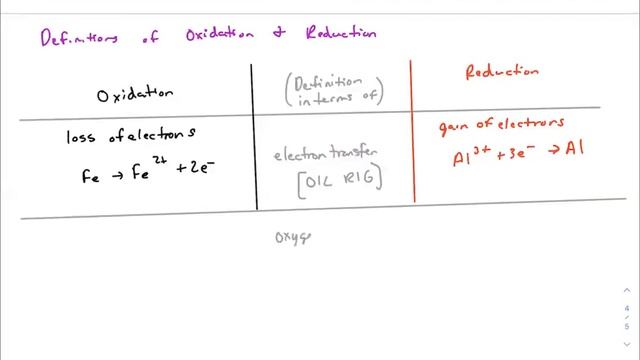 Definitions of Oxidation & Reduction
Oxidation
(Definition
in terms of)
Reduction
loss of electrons
Fe → Fe²⁺ + 2e⁻
electron transfer
[OIL RIG]
gain of electrons
Al³⁺ + 3e⁻ → Al
oxyg
4
/
5